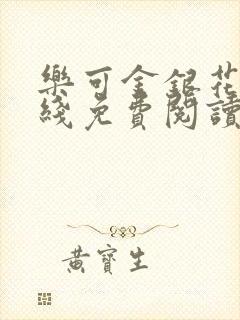 樂可金銀花
綫免費閱讀
黃寶生